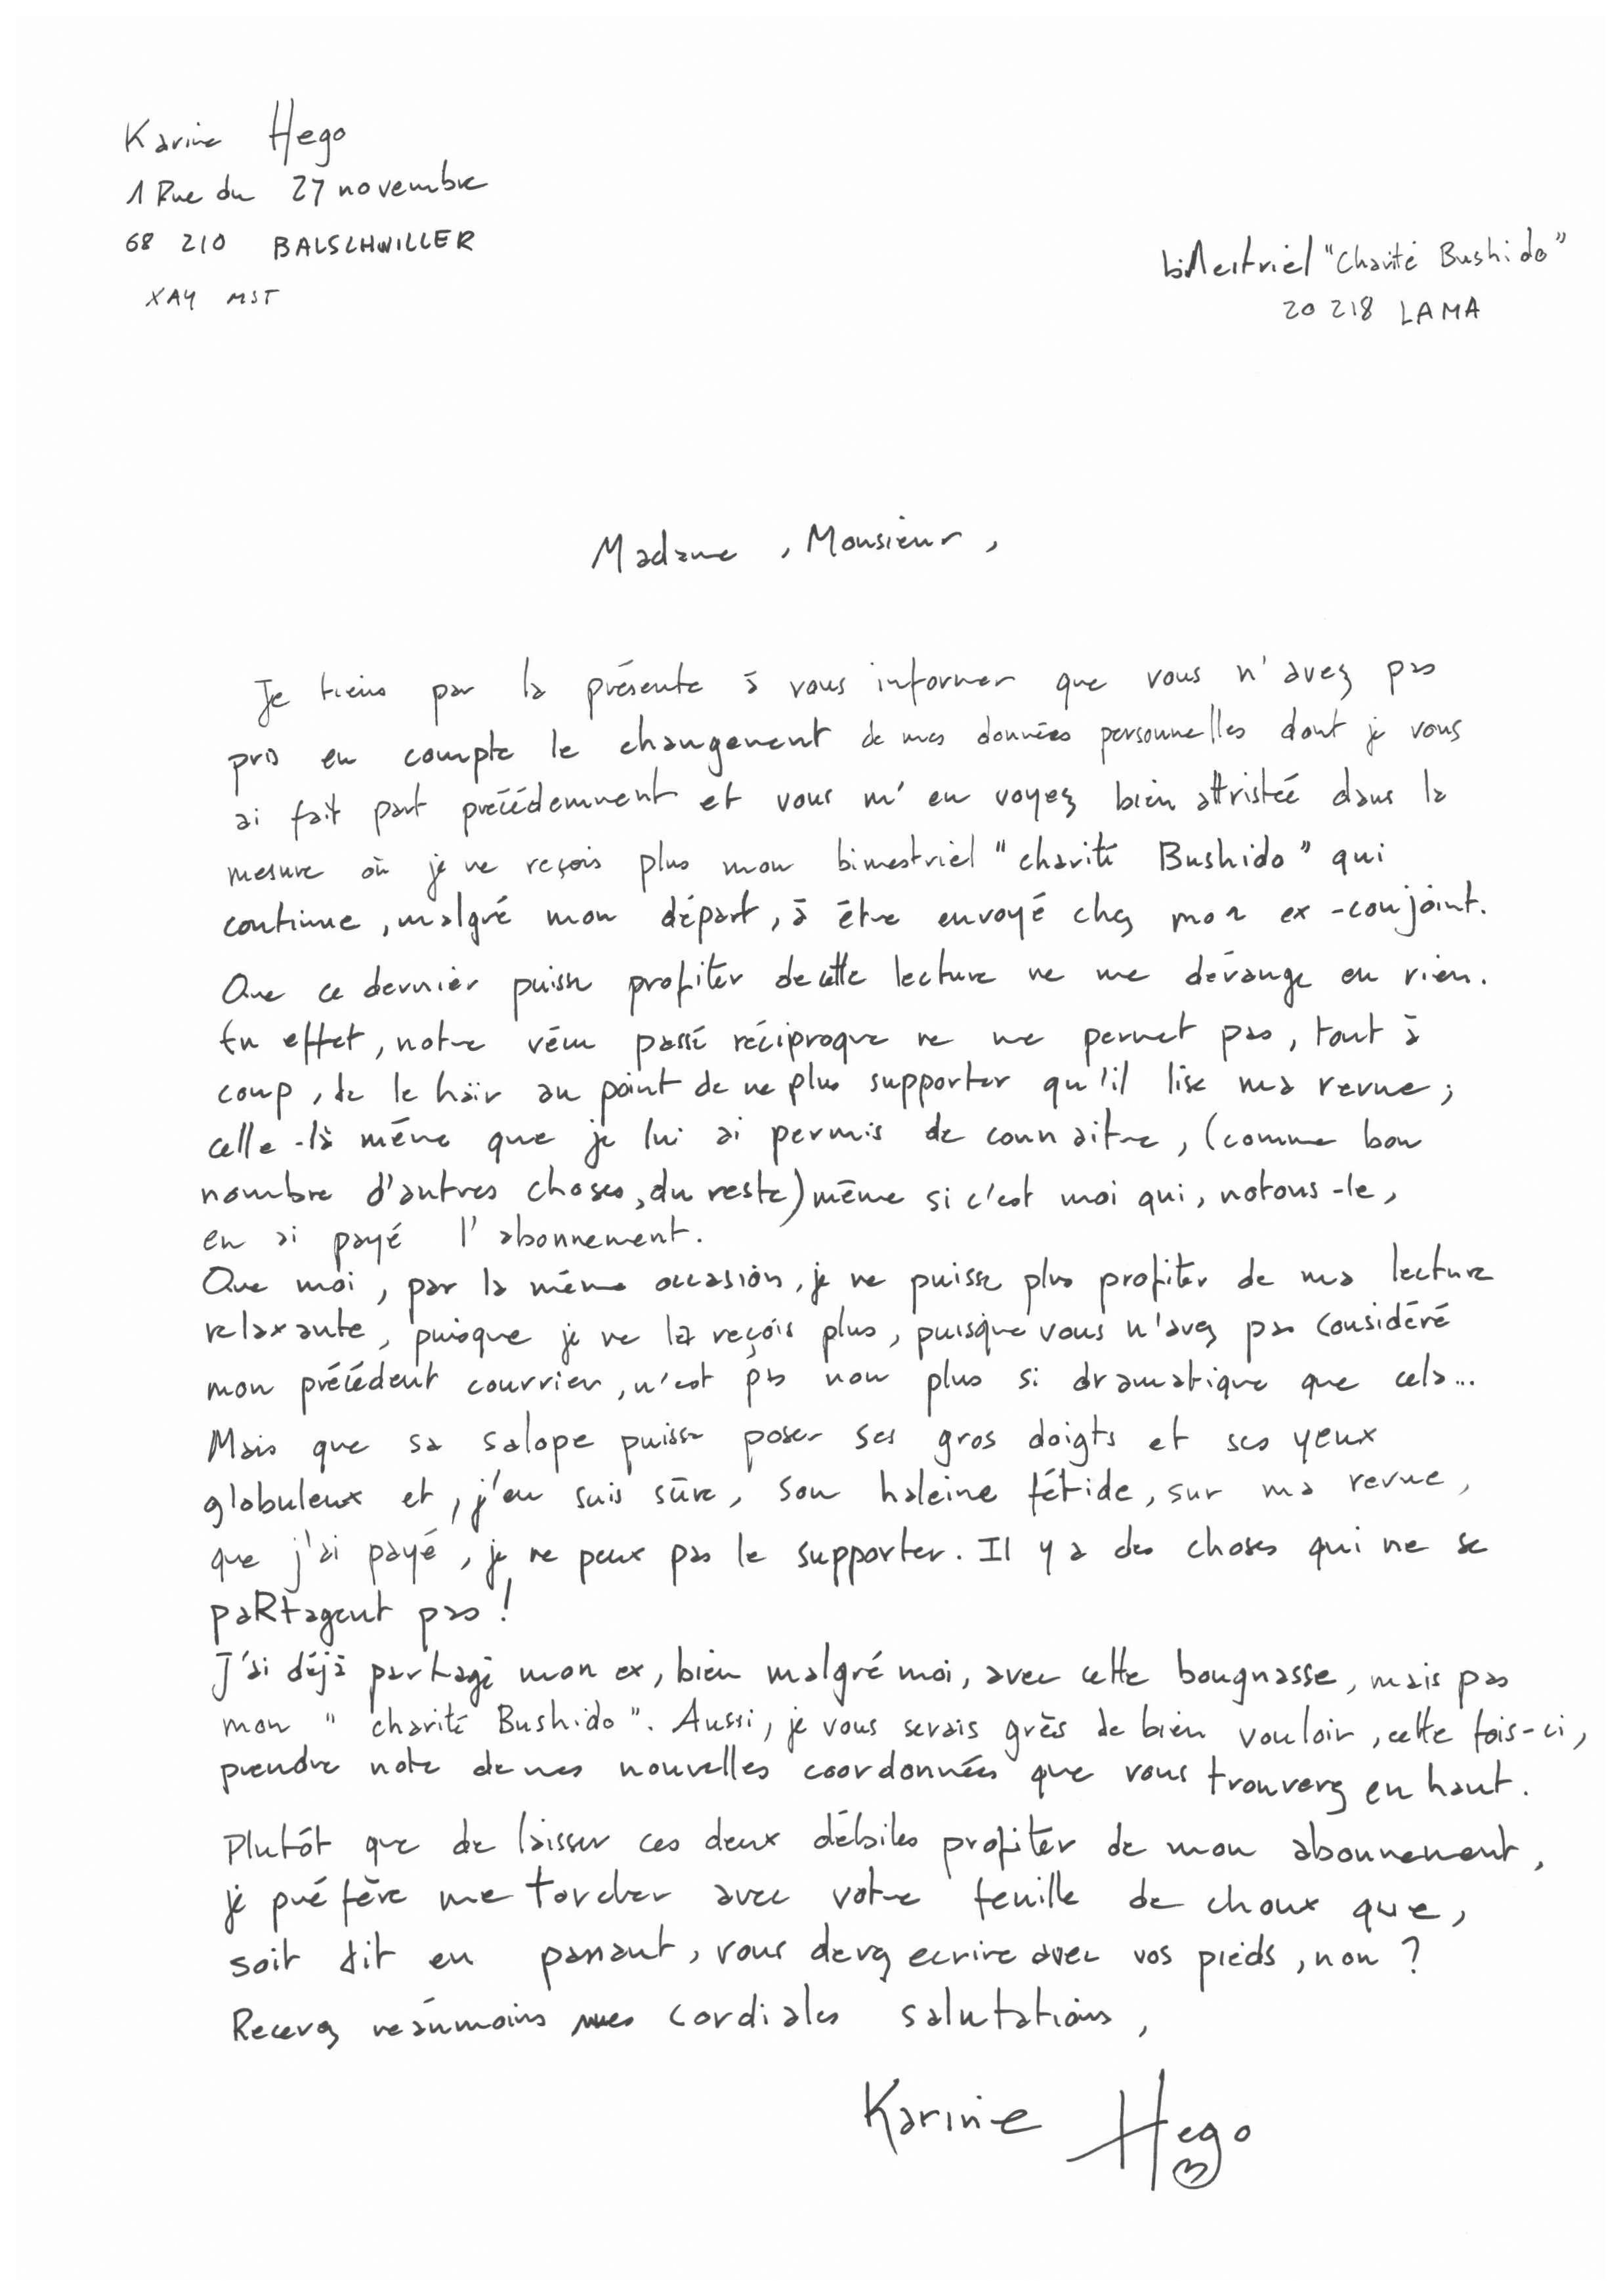 Karine Hego
1 Rue du 27 novembre
68 210 BALSCHWILLER
XAY MST
biMestriel "Charité Bushido"
20 218 LAMA
Madame, Monsieur,
Je tiens par la présente à vous informer que vous n'avez pas
pris en compte le changement de mes données personnelles dont je vous
ai fait part précédemment et vous m'en voyez bien attristée dans la
mesure où je ne reçois plus mon bimestriel "charité Bushido" qui
continue, malgré mon départ, à être envoyé chez mon ex-conjoint.
Que ce dernier puisse profiter de cette lecture ne me dérange en rien.
En effet, notre vécu passé réciproque ne me permet pas, tout à
coup, de le haïr au point de ne plus supporter qu'il lise ma revue ;
celle-là même que je lui ai permis de connaitre, (comme bon
nombre d'autres choses, du reste) même si c'est moi qui, notons-le,
en ai payé l'abonnement.
Que moi, par la même occasion, je ne puisse plus profiter de ma lecture
relaxante, puisque je ne la reçois plus, puisque vous n'avez pas considéré
mon précédent courrier, n'est pas non plus si dramatique que cela...
Mais que sa salope puisse poser ses gros doigts et ses yeux
globuleux et, j'en suis sûre, son haleine fétide, sur ma revue,
que j'ai payé, je ne peux pas le supporter. Il y a des choses qui ne se
paRtagent pas !
J'ai déjà partagé mon ex, bien malgré moi, avec cette bougnasse, mais pas
mon "charité Bushido". Aussi, je vous serais grès de bien vouloir, cette fois-ci,
prendre note de mes nouvelles coordonnées que vous trouverez en haut.
Plutôt que de laisser ces deux débiles profiter de mon abonnement,
je préfère me torcher avec votre feuille de choux que,
soit dit en passant, vous devez ecrire avec vos pieds, non ?
Recevez néanmoins mes cordiales salutations,
Karine Hego